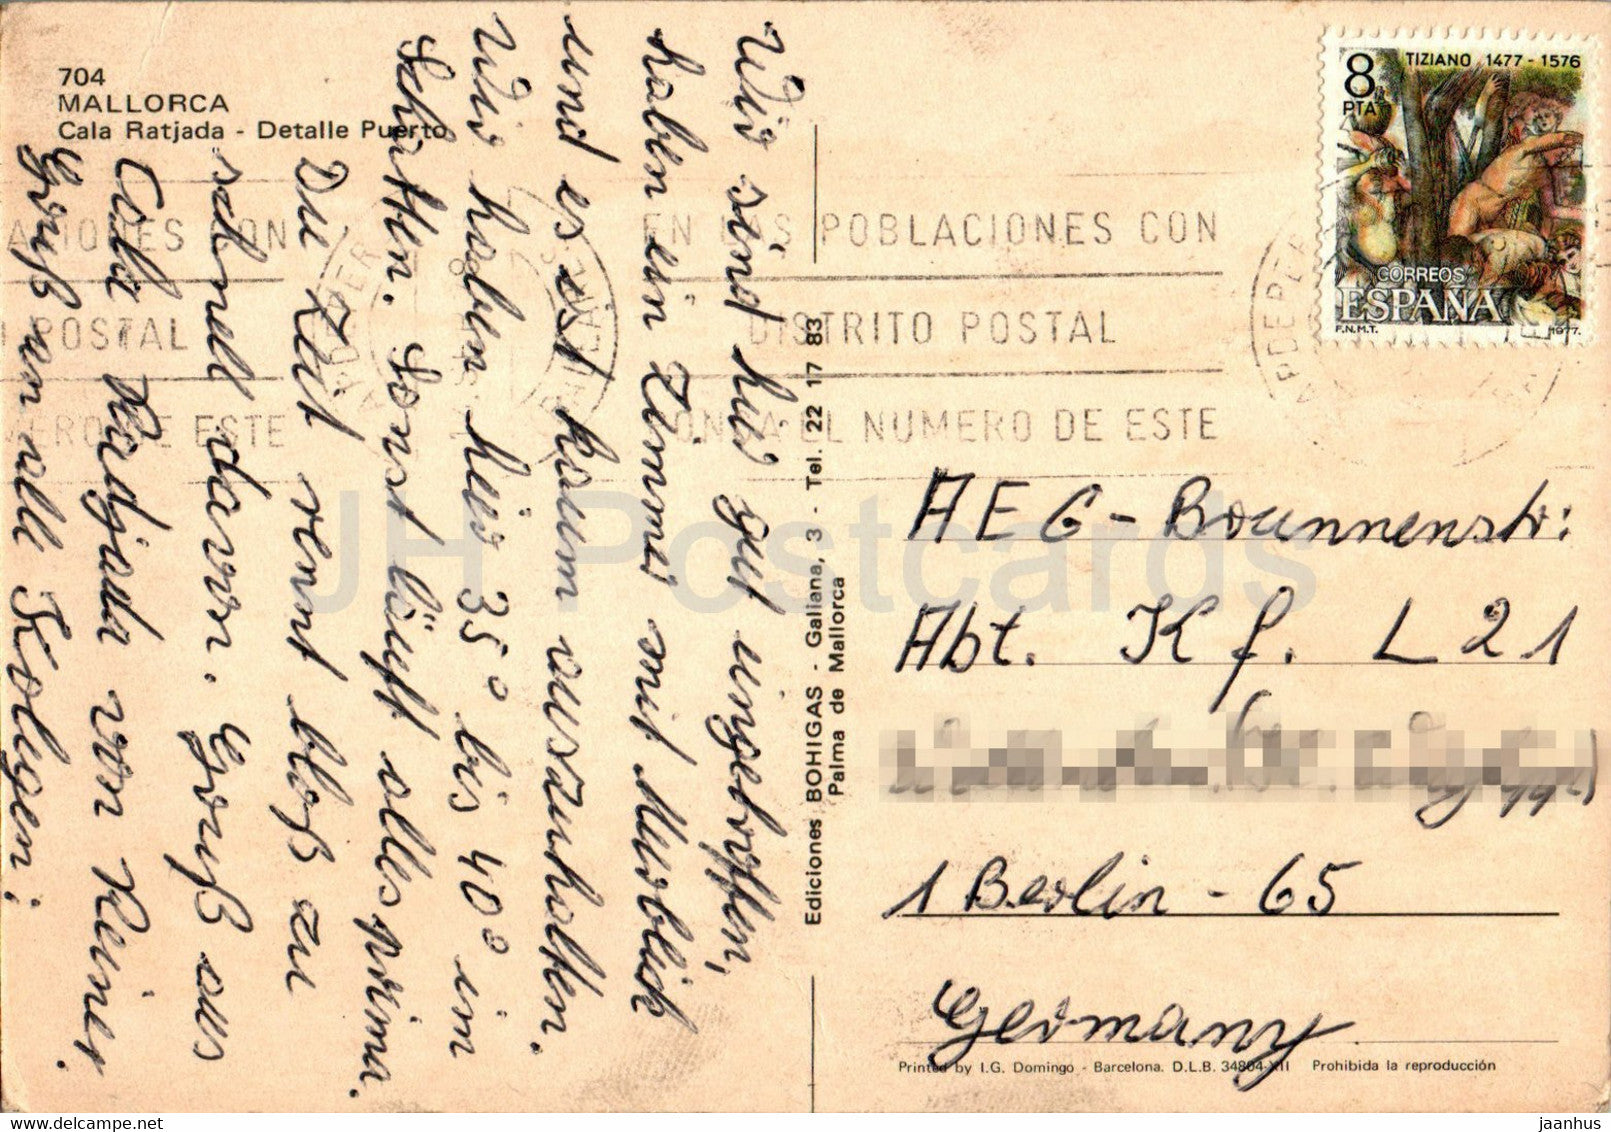 704
MALLORCA
Cala Ratjada - Detalle Puerto
Wir sind hir gut eingetroffen,
haben ein Zimmer mit Meerblick
und es ist kaum auszuhalten.
Wir haben hir 35° bis 40° im
Schatten. Sonst läuft alles prima.
Die Zeit rennt bloß zu
schnell davon. Gruß aus
Cala Radjada von Reiner.
Gruß an all Kolegen!
Ediciones BOHIGAS - Galiana, 3 - Tel. 22 17 83
Palma de Mallorca
8 PTA
TIZIANO 1477 - 1576
CORREOS
ESPAÑA
F.N.M.T. 1977.
EN LAS POBLACIONES CON
DISTRITO POSTAL
PONGA EL NUMERO DE ESTE
AEG - Brunnenstr:
Abt. Kf. L 21
1 Berlin - 65
Germany
Printed by I.G. Domingo - Barcelona. D.L.B. 34804-XII Prohibida la reproducción
JH Postcards
jaanhus / HipPostcard.com